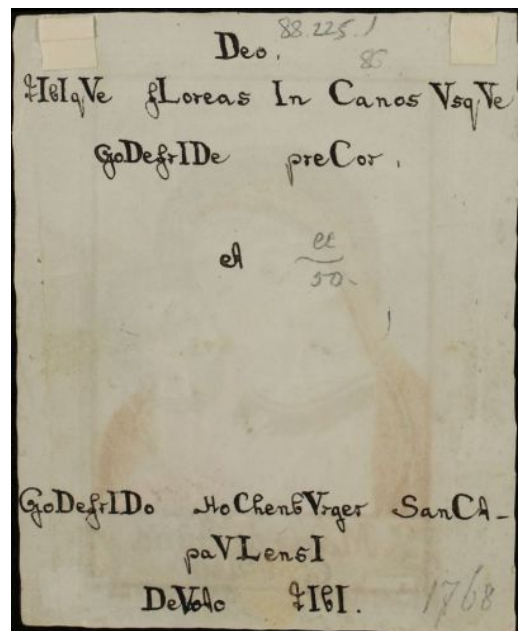 88.225.1
Deo.
86
TIbIqVe fLoreas In Canos VsqVe
GoDefrIDe preCor.
et
50-
GoDefrIDo HoChenbVrger SanCt-
paVLensI
DeVoto TIbI.
1768